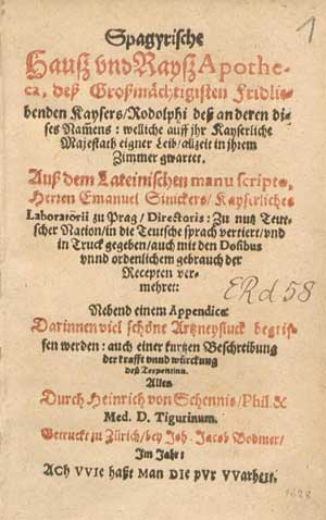 1
Spagyrische
Hauß vnd Rayß Apothe-
ca, deß Großmächtigisten Fridlie-
benden Kaysers/Rodolphi deß anderen di-
ses Nam̃ens: welliche auff jhr Kayserliche
Majestath eigner Leib/allzeit in jhrem
Zimmer gwartet.
Auß dem Lateinischen manu scripto,
Herren Emanuel Sinckers/Kayserliches
Laboratörii zu Prag/Directoris: Zu nutz Teut-
scher Nation/in die Teutsche sprach vertiert/vnd
in Truck gegeben/auch mit den Dosibus
vnnd ordenlichem gebrauch der
Recepten ver-
mehret:
Nebend einem Appendice:
Darinnen viel schöne Artzneystuck begrif-
fen werden: auch einer kurtzen Beschreibung
der krafft vnnd würckung
deß Terpentins.
Alles
Durch Heinrich von Schennis/Phil. &
Med. D. Tigurinum.
Getruckt zu Zürich/bey Joh. Jacob Bodmer/
Im Jahr:
ACh VVIe haßt Man DIe pVr VVarheit.
ERd 58
1628